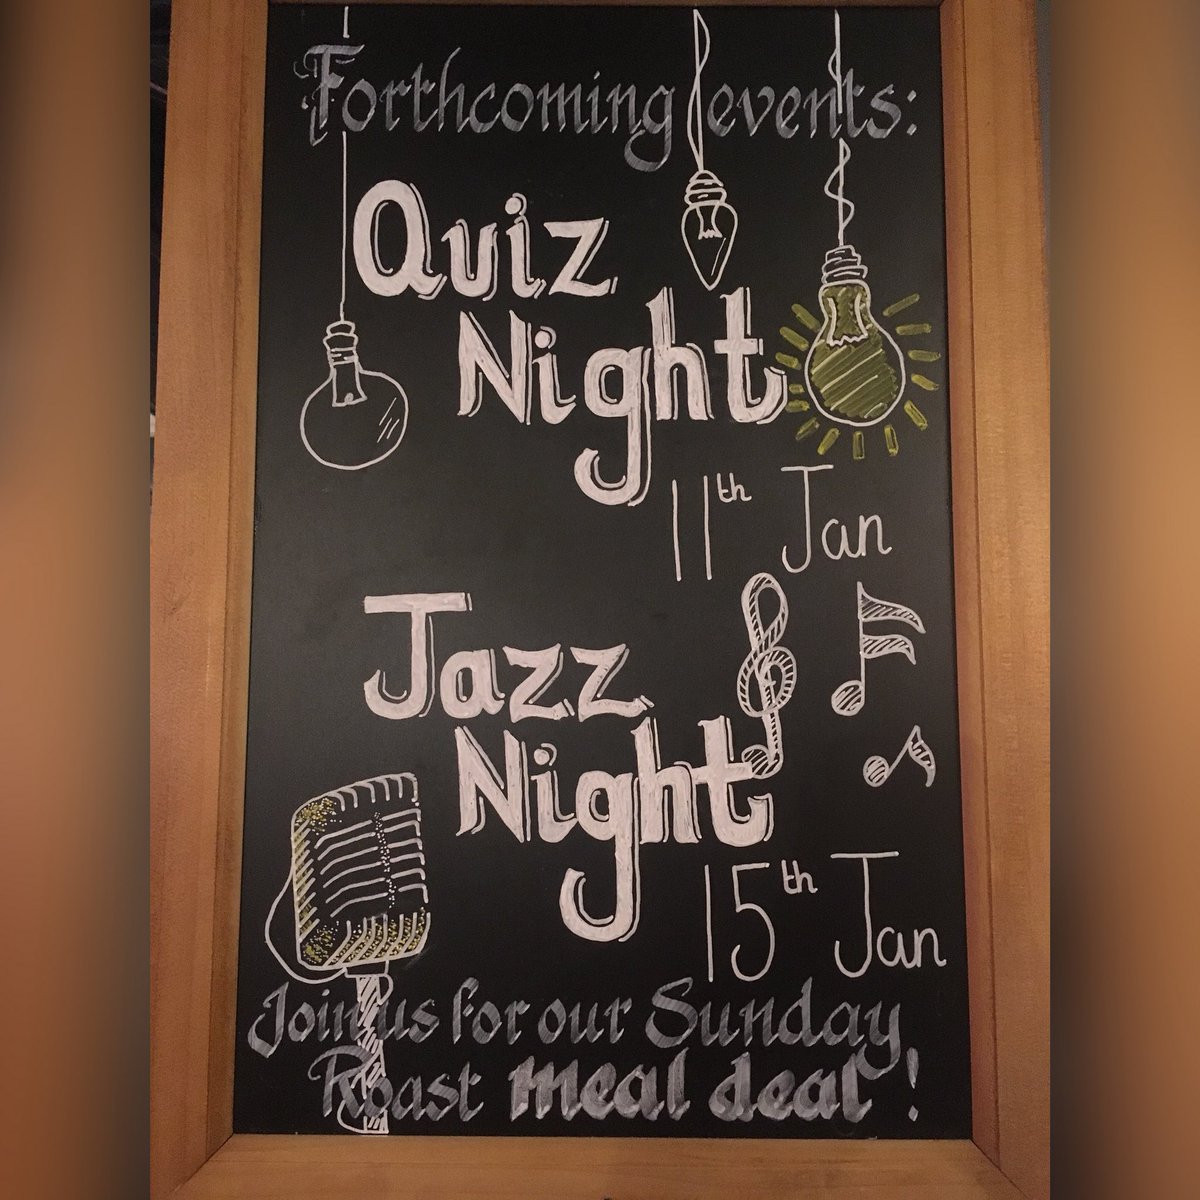 Forthcoming events:
Quiz
Night
11th Jan
Jazz
Night
15th Jan
Join us for our Sunday
Roast meal deal!